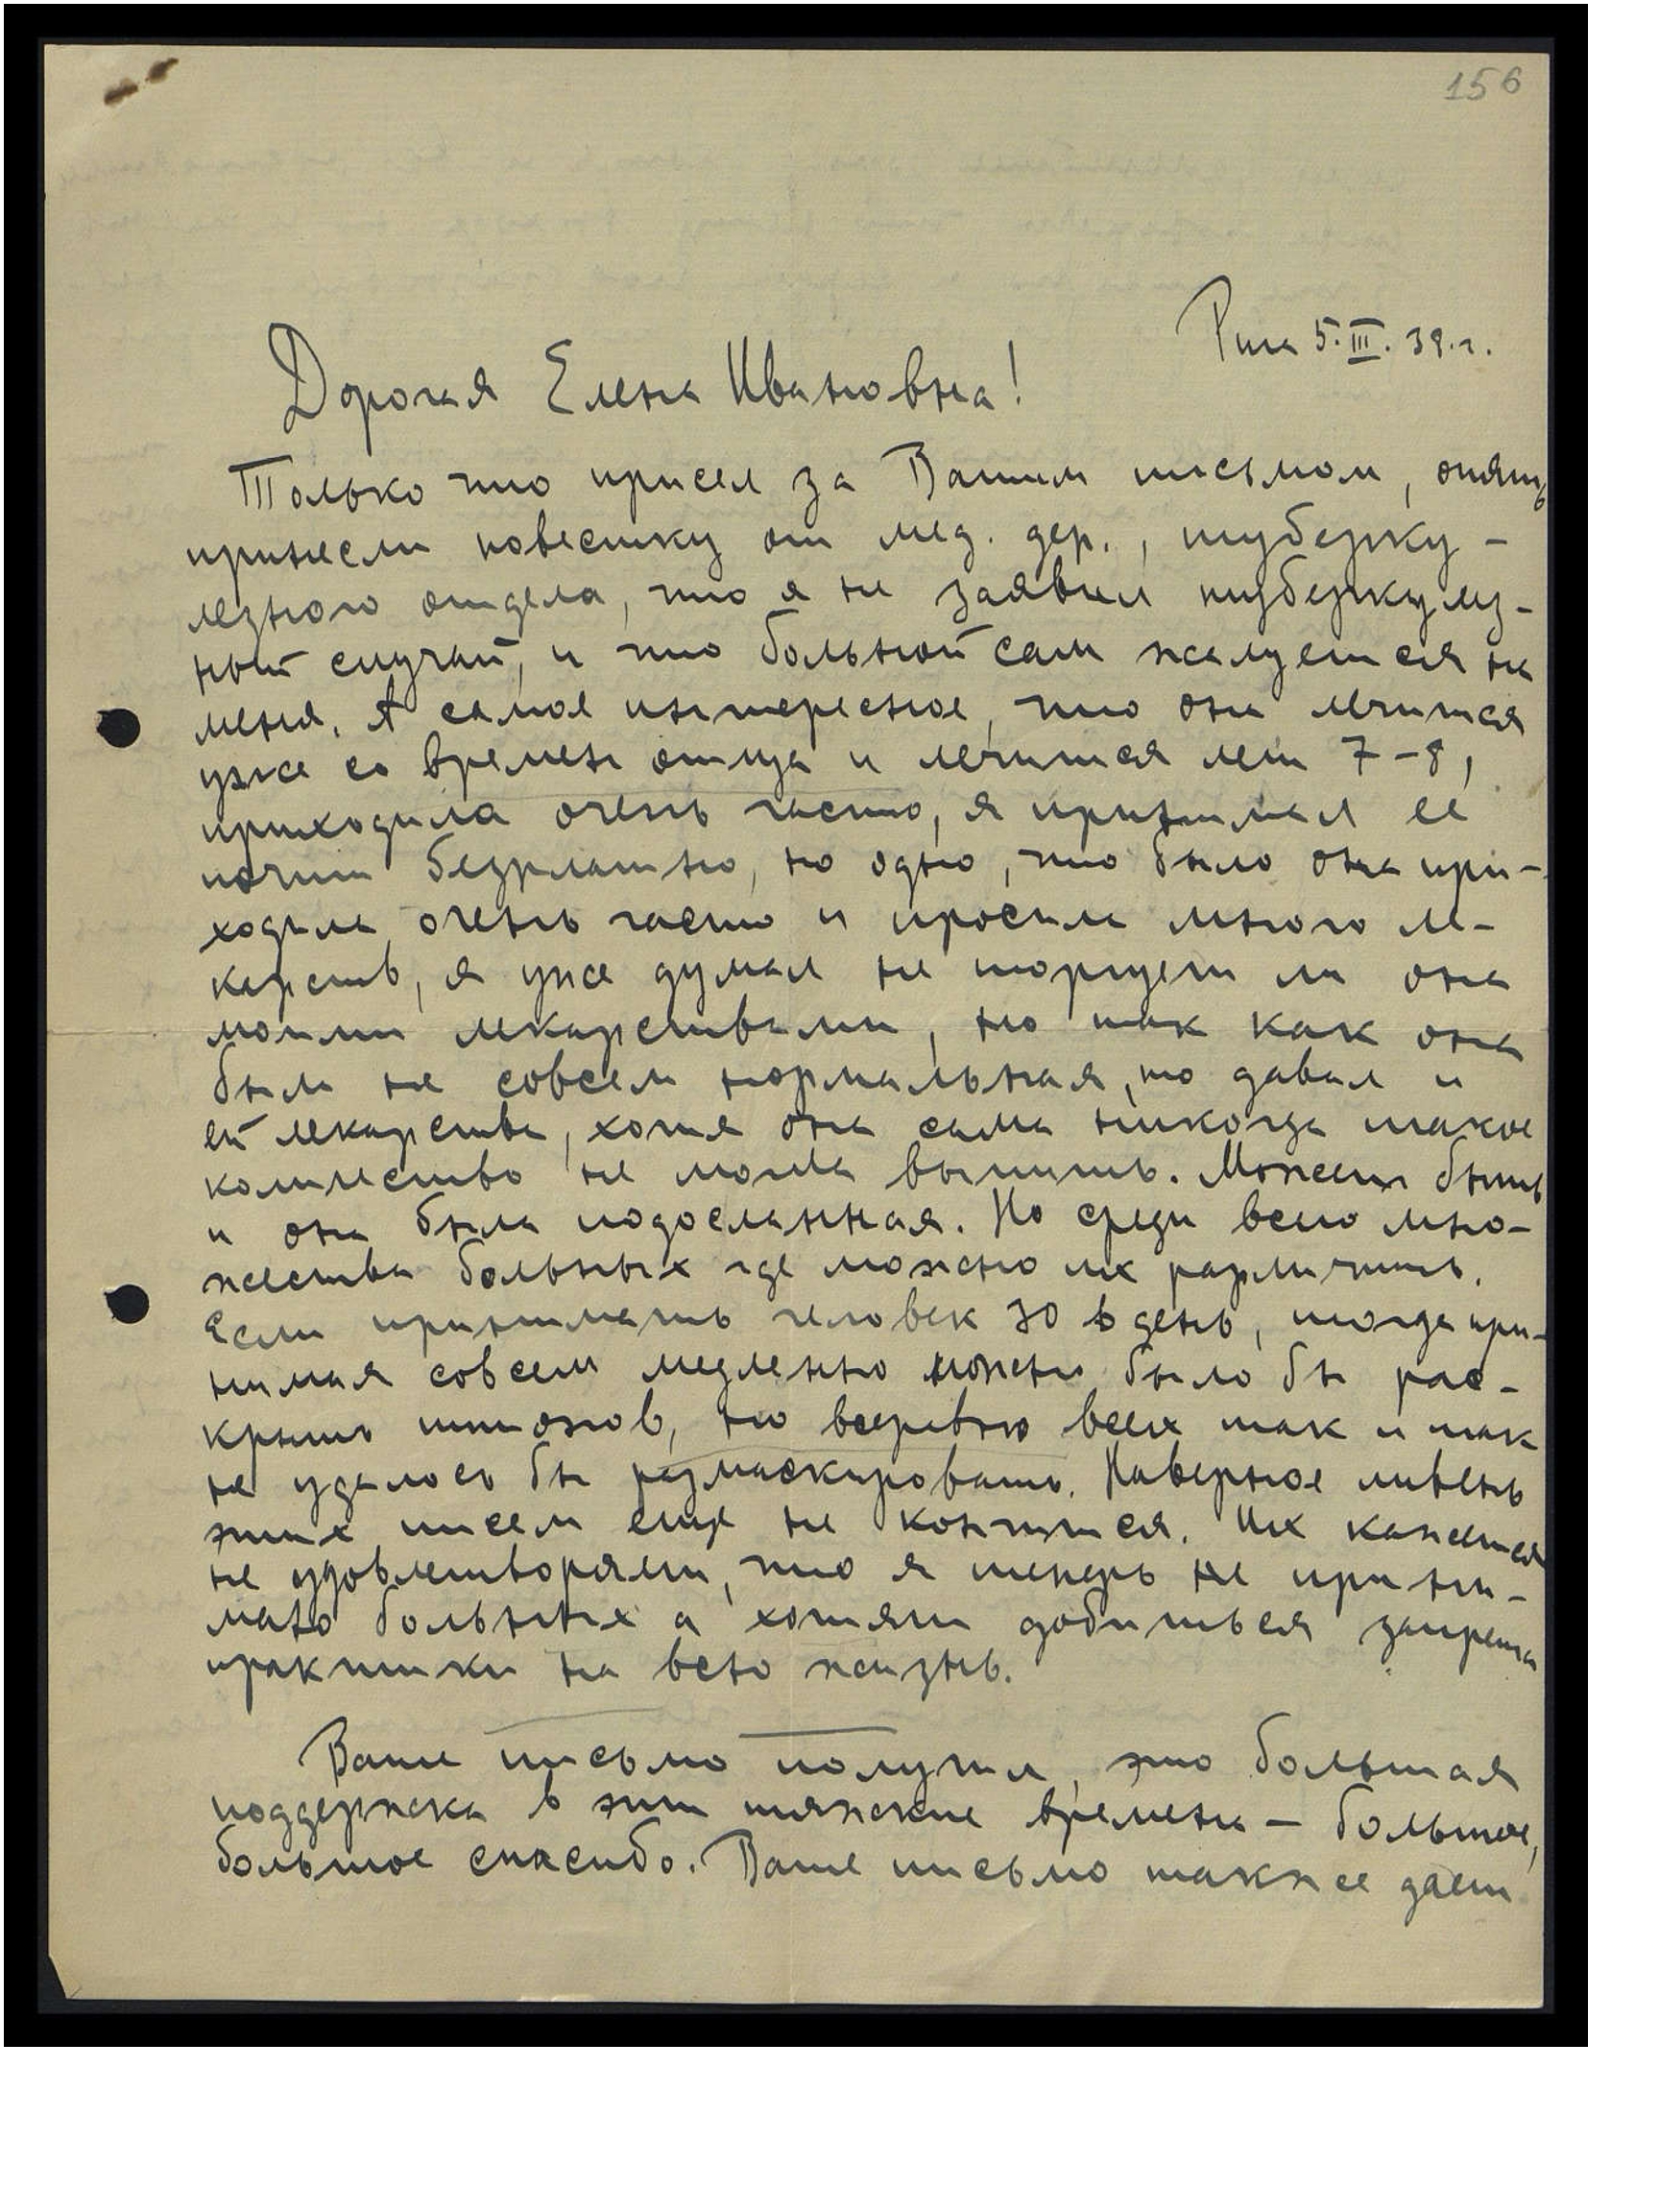 156
Рига 5.III.39.г.
Дорогая Елена Ивановна!
Только что присел за Вашим письмом, опять
принесли повестку от мед. деп., туберку-
лезного отдела, что я не заявил туберкулез-
ный случай, и что больной сам жалуется на
меня. А самое интересное, что она лечится
уже со времен отца и лечится лет 7-8,
приходила очень часто, я принимал её
почти безплатно, но одно, что было она при-
ходила очень часто и просила много ле-
карств, я уже думал не торгует ли она
моими лекарствами, но так как она
была не совсем нормальная, то давал и
ей лекарства, хотя она сама никогда такое
количество не могла выпить. Может быть
и она была подосланная. Но среди всего мно-
жества больных где можно их различить.
Если принимать человек 30 в день, тогда при-
нимая совсем медленно можно было бы рас-
крыть шпионов, но всеравно всех так и так
не удалось бы размаскировать. Наверное ливень
этих писем еще не кончится. Их кажется
не удовлетворяет, что я теперь не прини-
маю больных а хотят добиться запрета
практики на всю жизнь.
Ваше письмо получил, это большая
поддержка в эти тяжские времена – большое,
большое спасибо. Ваше письмо также дает